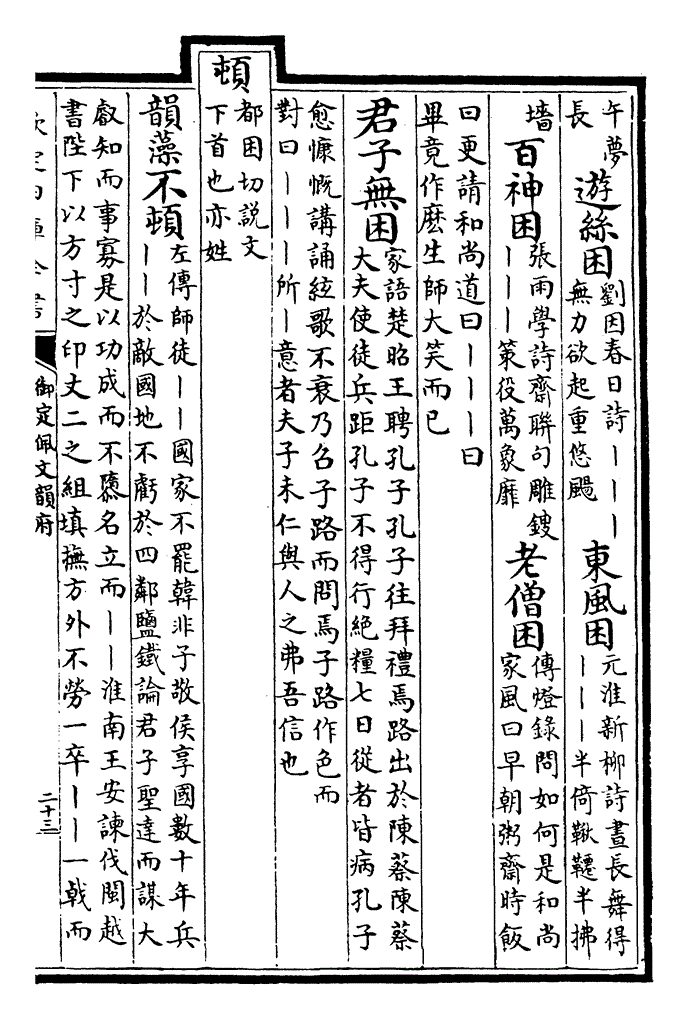 午夢
長
遊絲困
劉因春日詩丨丨丨
無力欲起重悠颺
東風困
元淮新柳詩晝長舞得
丨丨丨半倚鞦韆半拂
墻
百神困
張雨學詩齋聯句雕鎪
丨丨丨策役萬象靡
老僧困
傳燈錄問如何是和尚
家風曰早朝粥齋時飯
曰更請和尚道曰丨丨丨曰
畢竟作麽生師大笑而已
君子無困
家語楚昭王聘孔子孔子往拜禮焉路出於陳蔡陳蔡
大夫使徒兵距孔子不得行絶糧七日從者皆病孔子
愈慷慨講誦絃歌不衰乃召子路而問焉子路作色而
對曰丨丨丨所丨意者夫子未仁與人之弗吾信也
頓
都困切說文
下首也亦姓
韻藻
不頓
左傳師徒丨丨國家不罷韓非子敬侯享國數十年兵
丨丨於敵國地不虧於四鄰鹽鐵論君子聖達而謀大
叡知而事寡是以功成而不隳名立而丨丨淮南王安諫伐閩越
書陛下以方寸之印丈二之組填撫方外不勞一卒丨丨一戟而
欽定四庫全書
御定佩文韻府
二十三